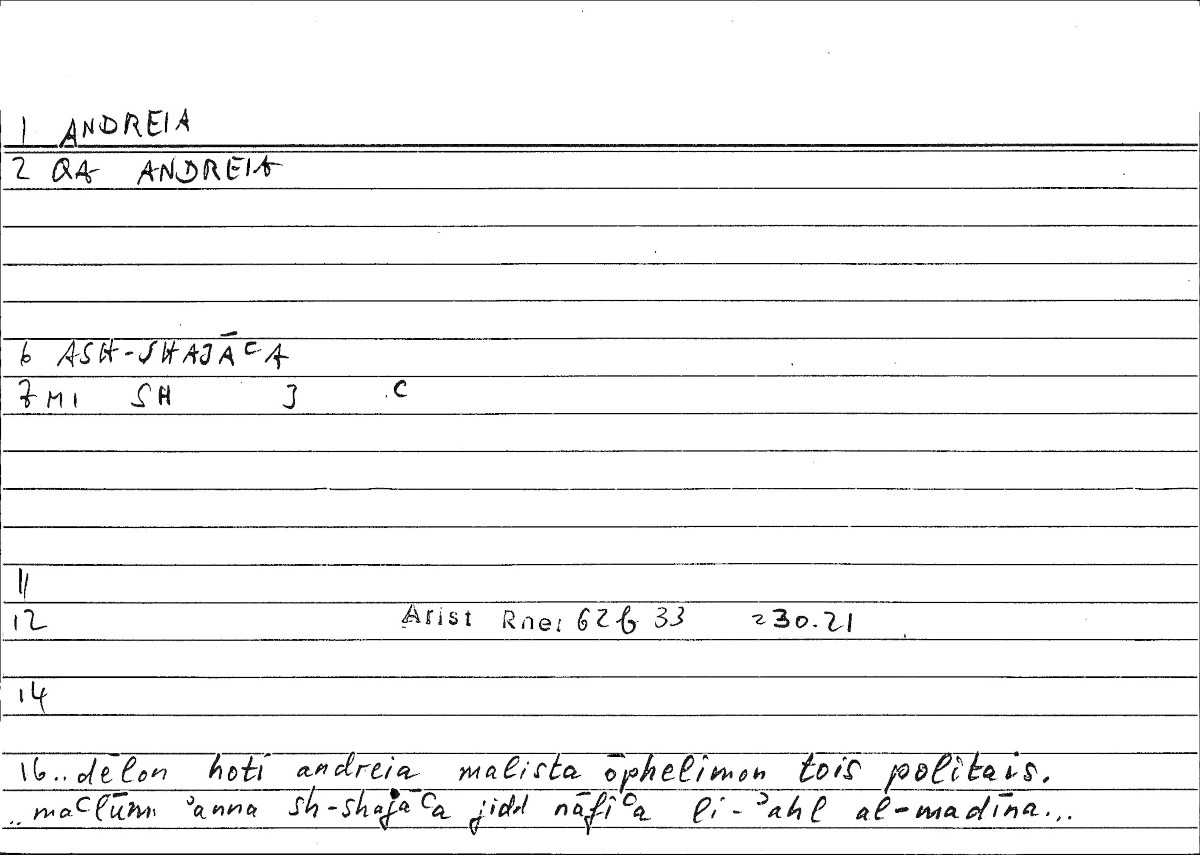 1 ANDREIA
2 QA ANDREIA
6 ASH-SHAJĀᶜA
7 MI SH J ᶜ
11
12 Arist Rhet 62b 33 = 30.21
14
16.. dēlon hoti andreia malista ōphelimon tois politais.
.. maᶜlūm ʾanna sh-shajāᶜa jidd nāfiᶜa li-ʾahl al-madīna...